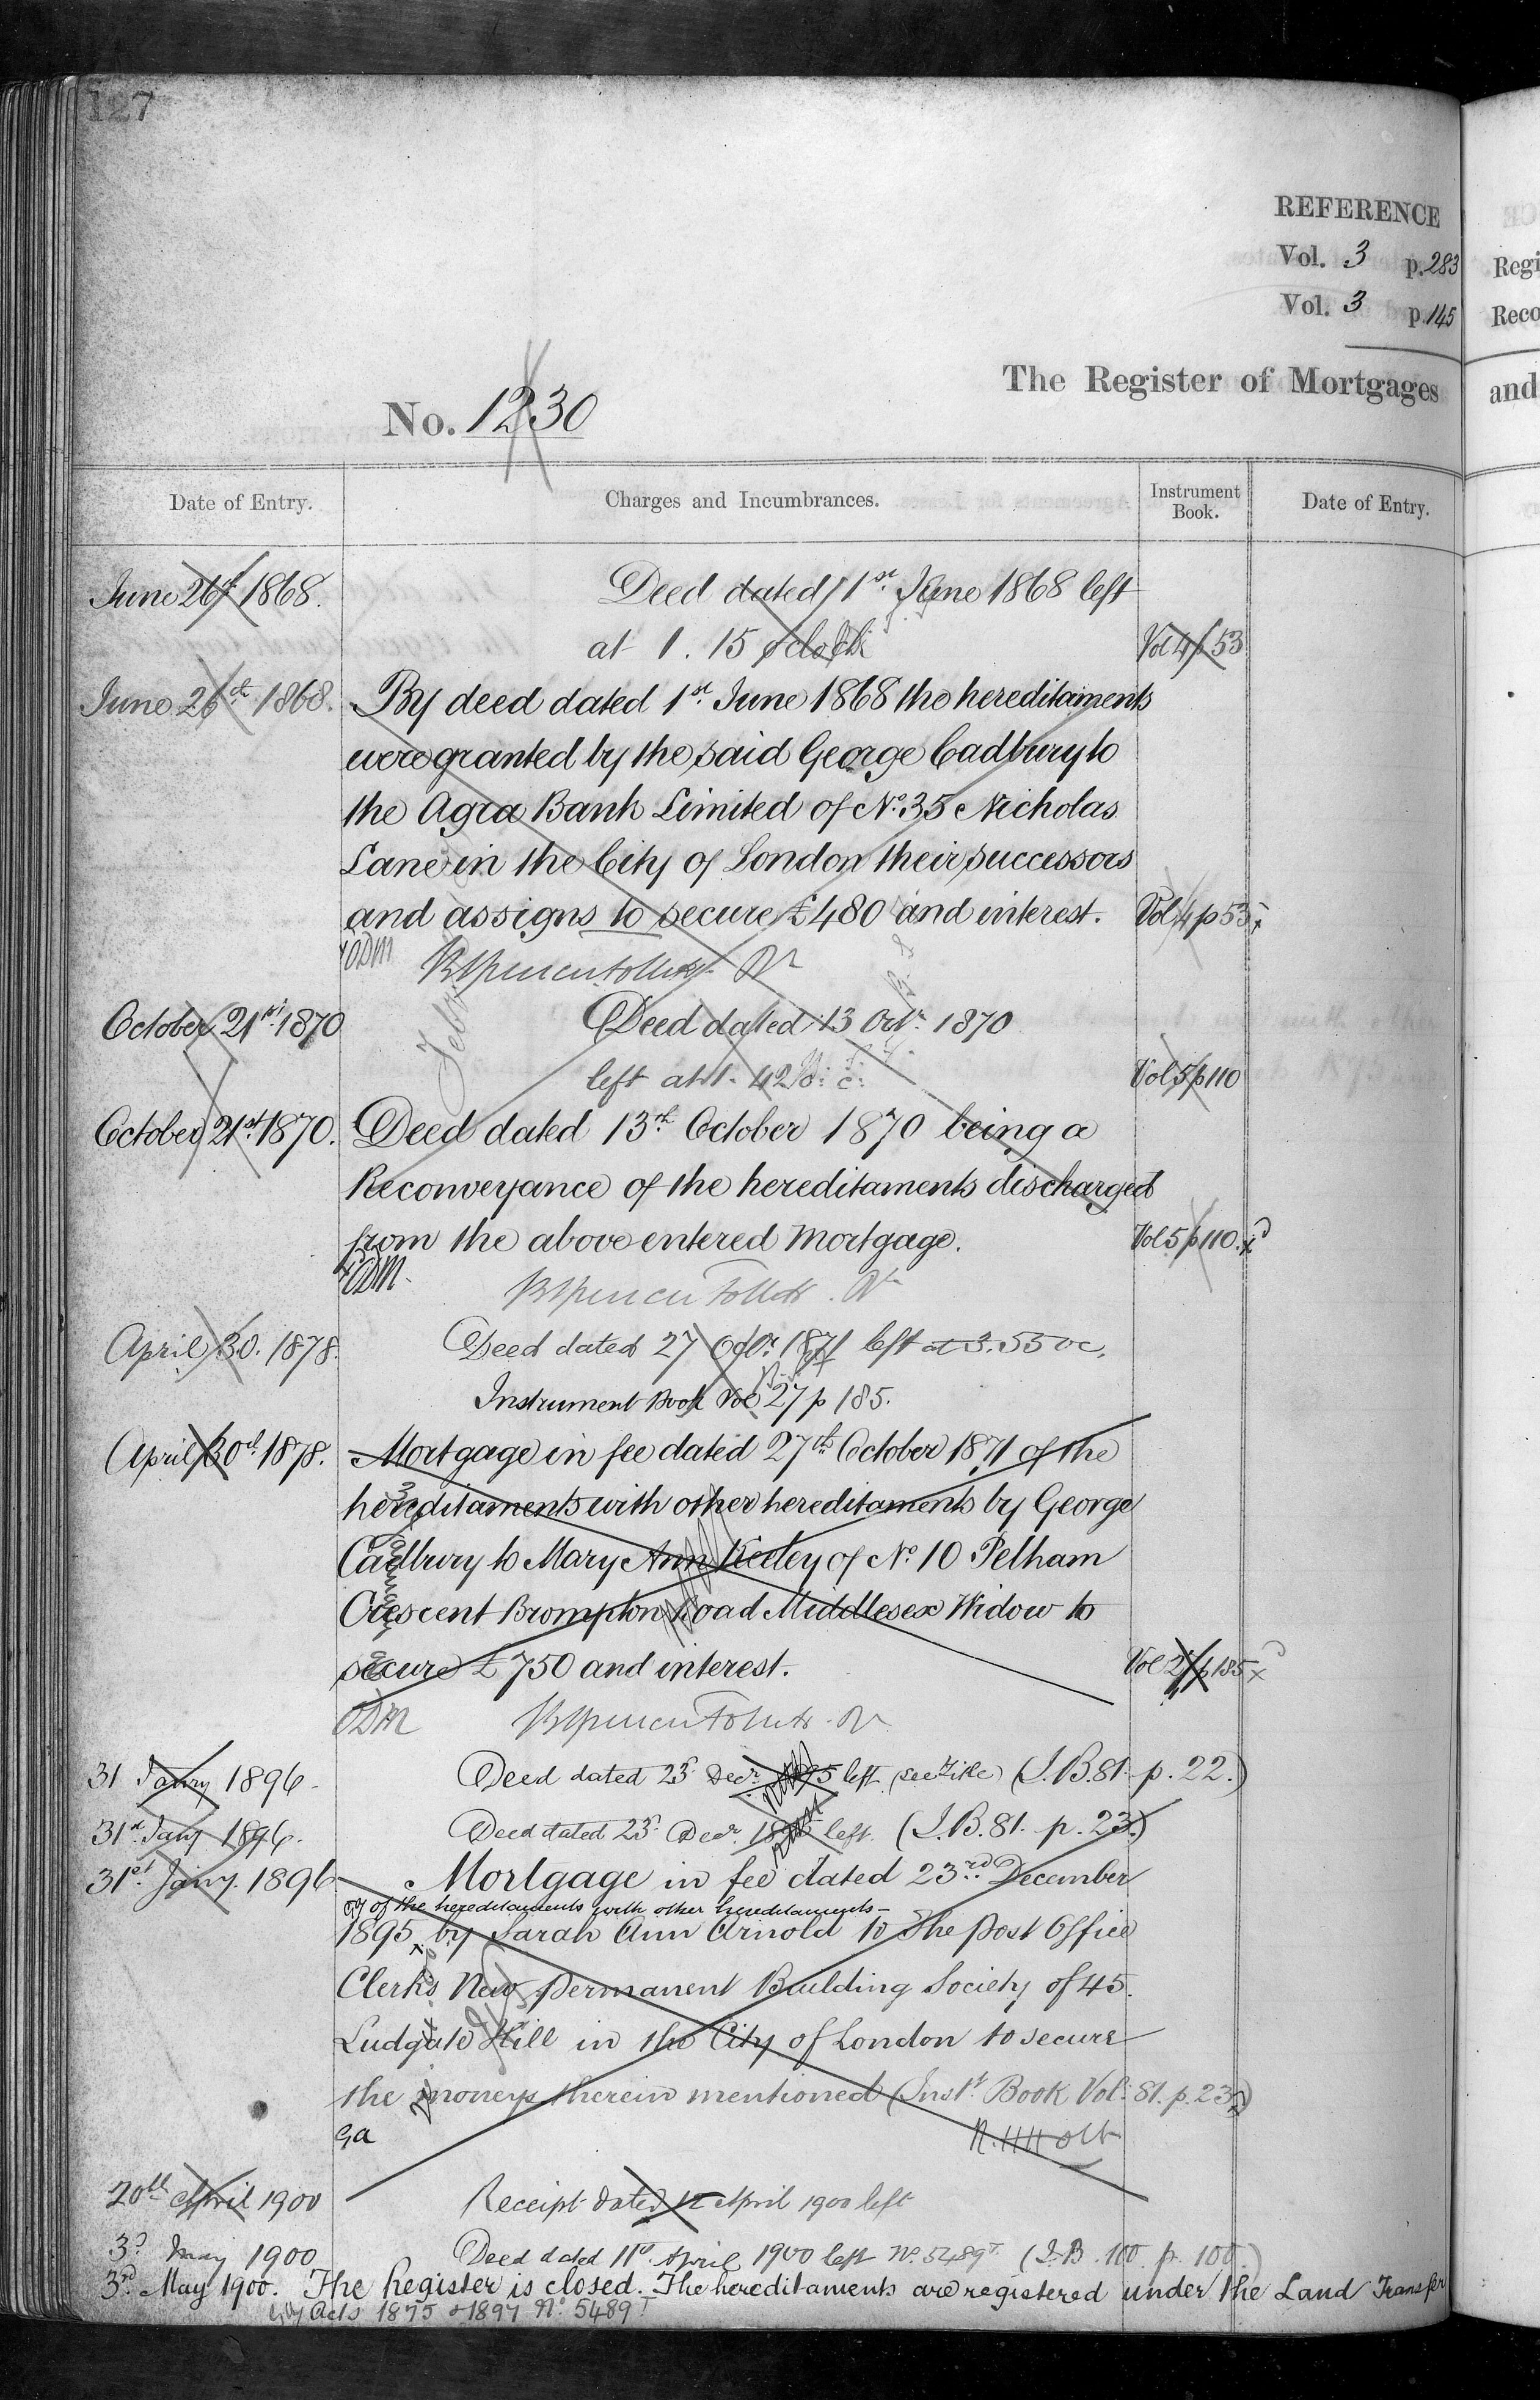 127
REFERENCE
Vol. 3 p. 283
Vol. 3 p. 145
The Register of Mortgages
No. 1230
Date of Entry. Charges and Incumbrances. Instrument Book. Date of Entry.
June 26th 1868. Deed dated 1st June 1868 left
at 1.15 o'clock Vol 4 p 53
June 26th 1868. By deed dated 1st June 1868 the hereditaments
were granted by the said George Cadbury to
the Agra Bank Limited of No. 35 Nicholas
Lane in the City of London their successors
and assigns to secure £480 and interest. Vol 4 p 53
ODM
October 21st 1870 Deed dated 13 Octr. 1870
left at 1.42 o.c. Vol 5 p 110
October 21st 1870. Deed dated 13th October 1870 being a
Reconveyance of the hereditaments discharged
from the above entered Mortgage. Vol 5 p 110.
ODM.
April 30. 1878. Deed dated 27 Octr. 1871 left at 3.55 oc.
Instrument Book Vol 27 p 185.
April 30th 1878. Mortgage in fee dated 27th October 1871 of the
hereditaments with other hereditaments by George
Cadbury to Mary Ann Keeley of No. 10 Pelham
Crescent Brompton Road Middlesex Widow to
secure £750 and interest. Vol 27 p 185
ODM
31 Janry 1896. Deed dated 23d Decr. 1895 left (see Title) (I.B. 81. p. 22.)
31st Jany 1896. Deed dated 23d Decr. 1895 left. (I.B. 81. p. 23.)
31st Jany. 1896 Mortgage in fee dated 23rd December
of the hereditaments with other hereditaments
1895 by Sarah Ann Arnold to The Post Office
Clerks New Permanent Building Society of 45.
Ludgate Hill in the City of London to secure
the moneys therein mentioned (Inst. Book Vol: 81. p. 23)
GA R. H. Holt
20th April 1900 Receipt dated 12 April 1900 left
3d May 1900 Deed dated 11th April 1900 left No. 5489T (I.B. 100. p. 100.)
3rd May 1900. The Register is closed. The hereditaments are registered under the Land Transfer
Acts 1875 & 1897 No. 5489T
Regi
Reco
and